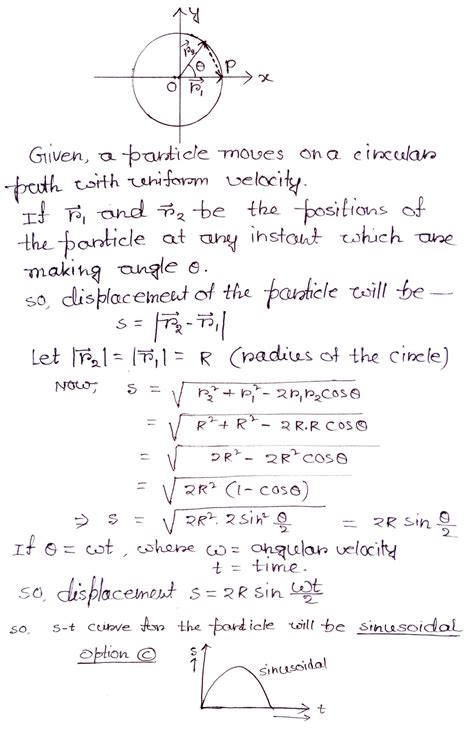 y
r⃗₂
θ
P
O
r⃗₁
x
Given, a particle moves on a circular
path with uniform velocity.
If r⃗₁ and r⃗₂ be the positions of
the particle at any instant which are
making angle θ.
so, displacement of the particle will be —
s = |r⃗₂ - r⃗₁|
Let |r⃗₂| = |r⃗₁| = R (radius of the circle)
Now, s = √(r₂² + r₁² - 2r₁r₂cosθ)
= √(R² + R² - 2R.R cosθ)
= √(2R² - 2R² cosθ)
= √(2R² (1 - cosθ))
⇒ s = √(2R². 2 sin² θ/2) = 2R sin θ/2
If θ = ωt, where ω = angular velocity
t = time.
so, displacement s = 2R sin ωt/2
so, s-t curve for the particle will be sinusoidal
option ©
s↑
sinusoidal
t